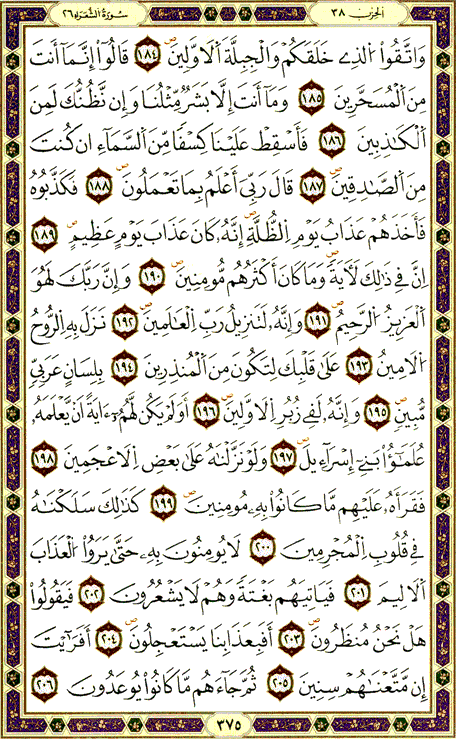 سُورَةُ الشُّعَرَاءِ ٢٦ الحِزْب ٣٨
وَاتَّقُواْ الَذِے خَلَقَكُمْ وَالْجِبِلَّةَ اَلَاوَّلِينَۖ ١٨٤ قَالُوٓاْ إِنَّمَآ أَنتَ
مِنَ اَلْمُسَحَّرِينَۖ ١٨٥ وَمَآ أَنتَ إِلَّا بَشَرٌ مِّثْلُنَا وَإِن نَّظُنُّكَ لَمِنَ
اَلْكَٰذِبِينَۖ ١٨٦ فَأَسْقِطْ عَلَيْنَا كِسْفاً مِّنَ اَلسَّمَآءِ ان كُنتَ
مِنَ اَلصَّٰدِقِينَۖ ١٨٧ قَالَ رَبِّيَ أَعْلَمُ بِمَا تَعْمَلُونَۖ ١٨٨ فَكَذَّبُوهُ
فَأَخَذَهُمْ عَذَابُ يَوْمِ اِلظُّلَّةِۖ إِنَّهُۥ كَانَ عَذَابَ يَوْمٍ عَظِيمٍۖ ١٨٩
اِنَّ فِے ذَٰلِكَ لَأٓيَةٗۖ وَمَا كَانَ أَكْثَرُهُم مُّومِنِينَۖ ١٩٠ وَإِنَّ رَبَّكَ لَهُوَ
اَلْعَزِيزُ اُلرَّحِيمُۖ ١٩١ وَإِنَّهُۥ لَتَنزِيلُ رَبِّ اِلْعَٰلَمِينَۖ ١٩٢ نَزَلَ بِهِ اِلرُّوحُ
اُلَامِينُ ١٩٣ عَلَىٰ قَلْبِكَ لِتَكُونَ مِنَ اَلْمُنذِرِينَ ١٩٤ بِلِسَانٍ عَرَبِيّٖ
مُّبِينٖۖ ١٩٥ وَإِنَّهُۥ لَفِے زُبُرِ اِلَاوَّلِينَۖ ١٩٦ أَوَلَمْ يَكُن لَّهُمُۥٓ ءَايَةً اَنْ يَّعْلَمَهُۥ
عُلَمَٰٓؤُاْ بَنِےٓ إِسْرَآءِيلَۖ ١٩٧ وَلَوْ نَزَّلْنَٰهُ عَلَىٰ بَعْضِ اِلَاعْجَمِينَ ١٩٨
فَقَرَأَهُۥ عَلَيْهِم مَّا كَانُواْ بِهِۦ مُومِنِينَۖ ١٩٩ كَذَٰلِكَ سَلَكْنَٰهُ
فِے قُلُوبِ اِلْمُجْرِمِينَ ٢٠٠ لَا يُومِنُونَ بِهِۦ حَتَّىٰ يَرَوُاْ اُلْعَذَابَ
اَلَالِيمَ ٢٠١ فَيَاتِيَهُم بَغْتَةً وَهُمْ لَا يَشْعُرُونَ ٢٠٢ فَيَقُولُواْ
هَلْ نَحْنُ مُنظَرُونَۖ ٢٠٣ أَفَبِعَذَابِنَا يَسْتَعْجِلُونَۖ ٢٠٤ أَفَرَٰٓيْتَ
إِن مَّتَّعْنَٰهُمْ سِنِينَ ٢٠٥ ثُمَّ جَآءَهُم مَّا كَانُواْ يُوعَدُونَ ٢٠٦
٣٧٥